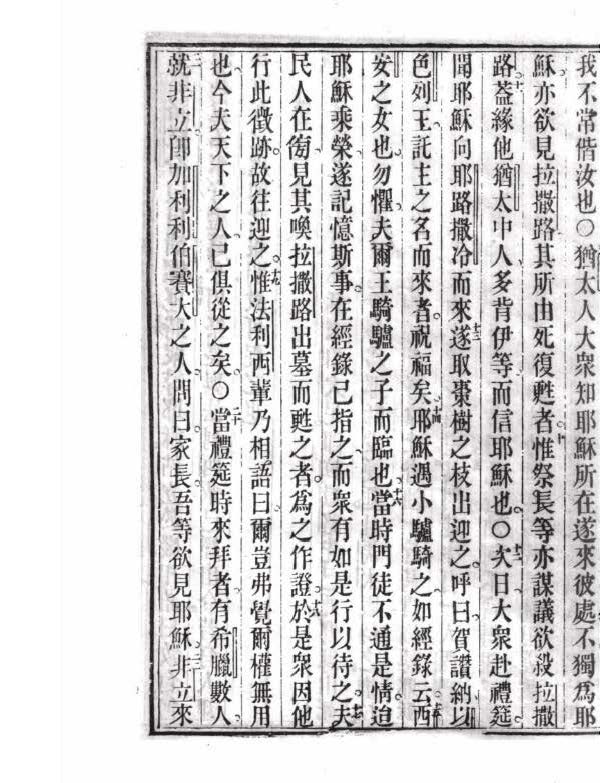 我不常偕汝也〇猶太人大衆知耶穌所在遂來彼處不獨為耶
穌亦欲見拉撒路其所由死復甦者十惟祭長等亦謀議欲殺拉撒
路十一蓋緣他猶太中人多背伊等而信耶穌也〇十二次日大衆赴禮筵
聞耶穌向耶路撒冷而來十三遂取棗樹之枝出迎之呼曰賀讚納以
色列王託主之名而來者祝福矣十四耶穌遇小驢騎之如經錄云十五西
安之女也勿懼夫爾王騎驢之子而臨也十六當時門徒不通是情迨
耶穌乘榮遂記憶斯事在經錄已指之而衆有如是行以待之十七夫
民人在衙見其喚拉撒路出墓而甦之者為之作證十八於是衆因他
行此徵跡故往迎之十九惟法利西輩乃相語曰爾豈弗覺爾權無用
也今夫天下之人已俱從之矣〇二十當禮筵時來拜者有希臘數人
二一就非立卽加利利伯賽大之人問曰家長吾等欲見耶穌二二非立來